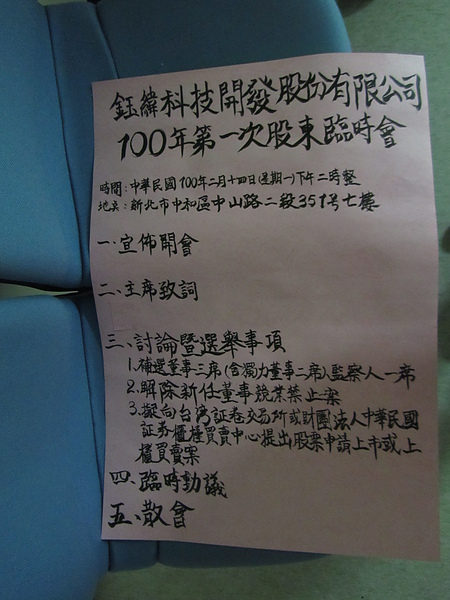 鈺緯科技開發股份有限公司
100年第一次股東臨時會
時間：中華民國100年二月十四日(星期一)下午二時整
地點：新北市中和區中山路二段351号七樓
一、宣佈開會
二、主席致詞
三、討論暨選舉事項
1.補選董事三席(含獨力董事二席)監察人一席
2.解除新任董事競業禁止案
3.擬向台湾証卷交易所或財團法人中華民國
証券櫃檯買賣中心提出股票申請上市或上
櫃買賣案
四、臨時動議
五、散會